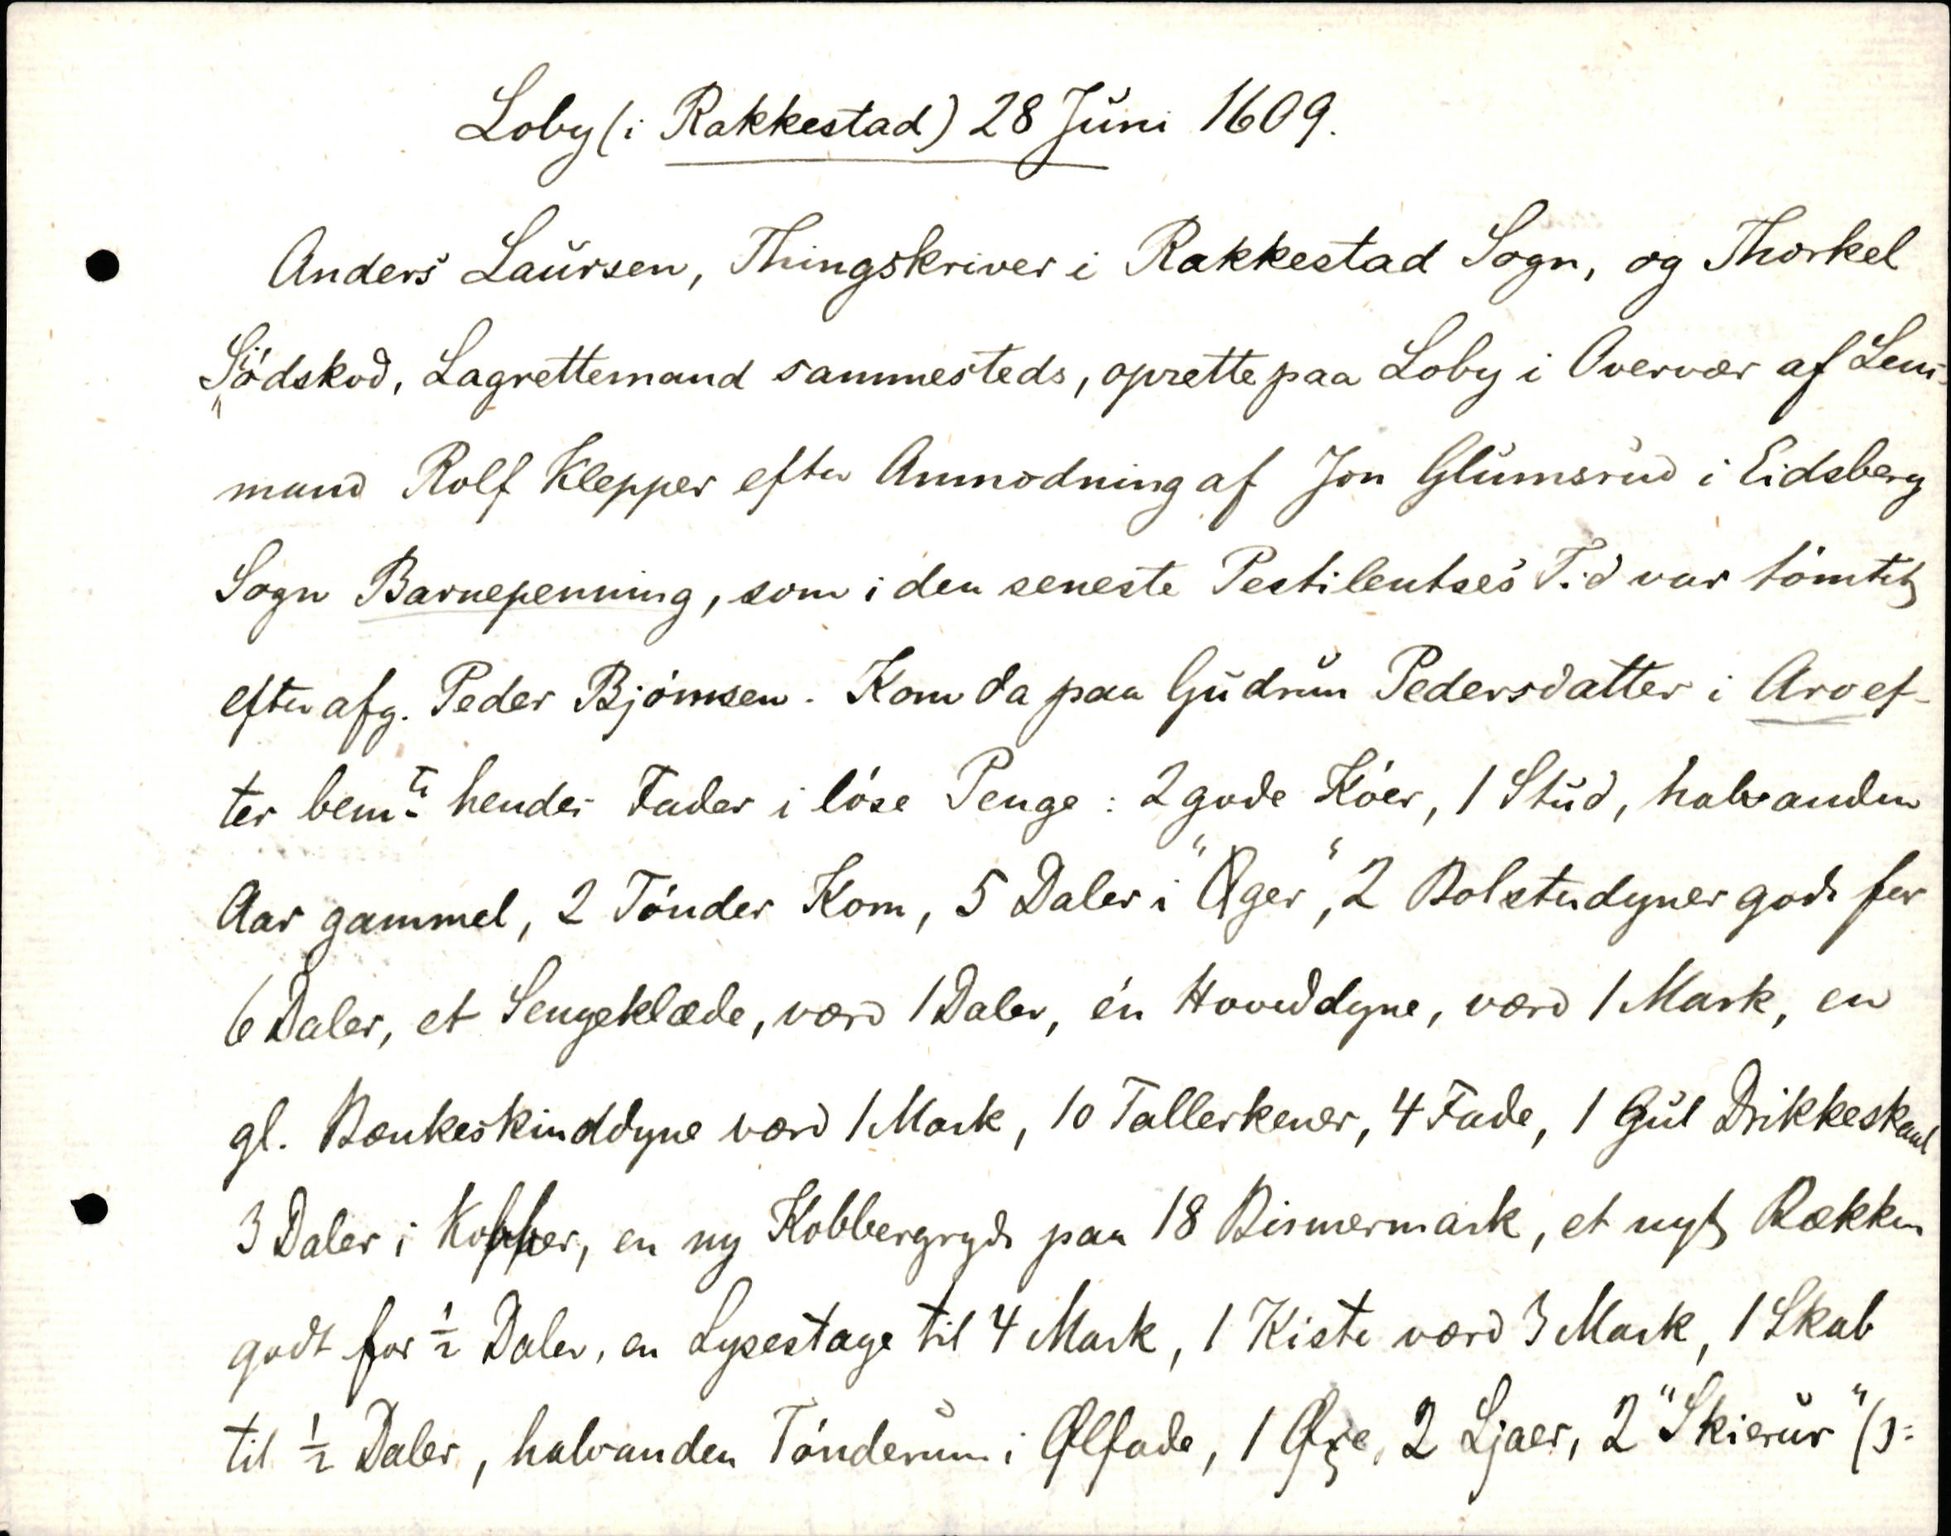 Loby (i Rakkestad) 28 Juni 1609.
Anders Laursen, Thingskriver i Rakkestad Sogn, og Thorkel
Sjödskod, Lagrettemand sammesteds, oprette paa Loby i Overvær af Lens-
mand Rolf Klepper efter Anmodning af Jon Glumsrud i Eidsberg
Sogn Barnepenning, som i den seneste Pestilentses Tid var tömtet
efter afg. Peder Björnsen. Kom da paa Gudrun Pedersdatter i Arv ef-
ter bemte hendes Fader i löse Penge: 2 gode Köer, 1 Stud, halvanden
Aar gammel, 2 Tönder Korn, 5 Daler i "Øger", 2 Bolsterdyner gode for
6 Daler, et Sengeklæde, værd 1 Daler, én Hoveddyne, værd 1 Mark, en
gl. Bænkeskinddyne værd 1 Mark, 10 Tallerkener, 4 Fade, 1 Gul Drikkeskaal
3 Daler i Kobber, en ny Kobbergryde paa 18 Bismermark, et nyt Bækken
godt for ½ Daler, en Lysestage til 4 Mark, 1 Kiste værd 3 Mark, 1 Skab
til ½ Daler, halvanden Tönderum i Ølfade, 1 Øxe, 2 Ljaer, 2 "Skierur" (ɔ: